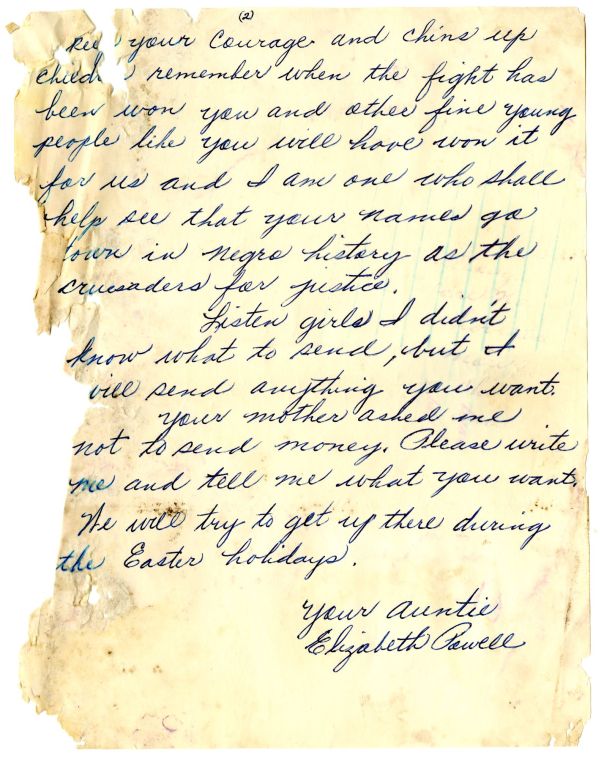 (2)
keep your courage and chins up
children remember when the fight has
been won you and other fine young
people like you will have won it
for us and I am one who shall
help see that your names go
down in negro history as the
crusaders for justice.
Listen girls I didn't
know what to send, but I
will send anything you want.
Your mother asked me
not to send money. Please write
me and tell me what you want.
We will try to get up there during
the Easter holidays.
Your Auntie
Elizabeth Powell